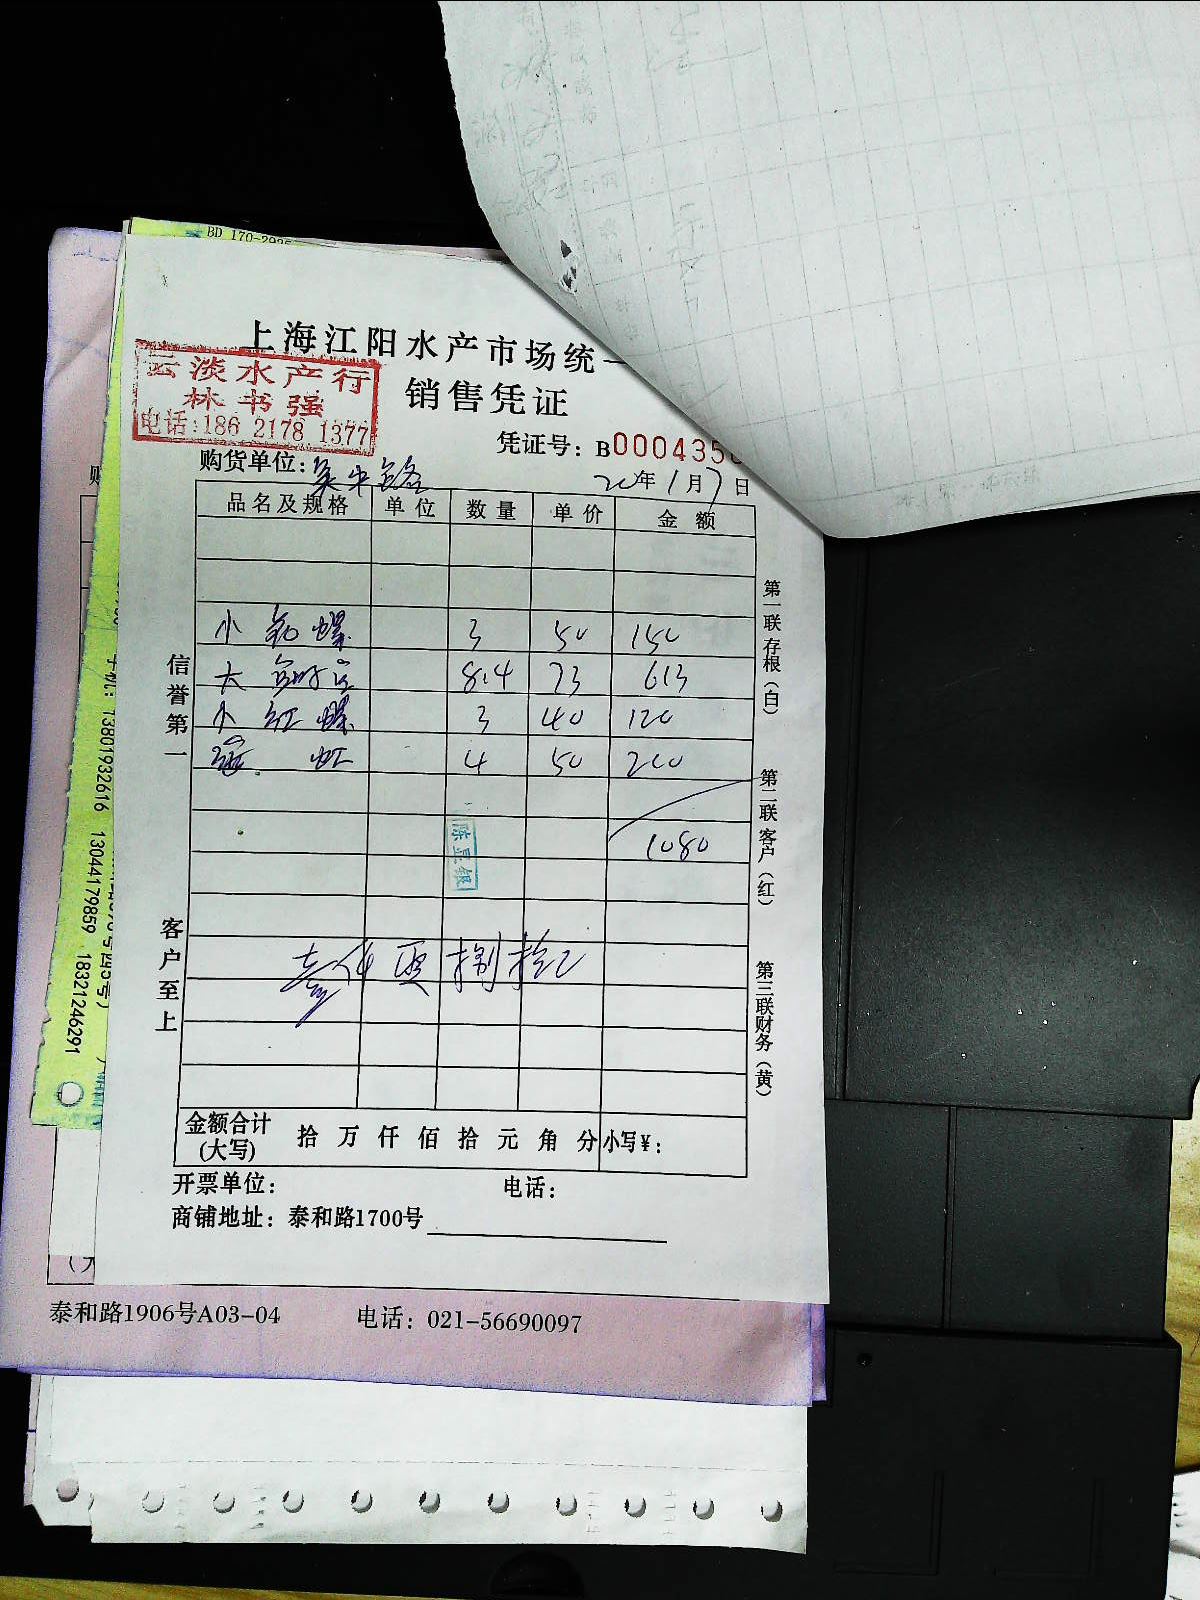 BD 170-2925
上海江阳水产市场统一
销售凭证
云淡水产行
林书强
电话:186 2178 1377
凭证号: B000435
购货单位: 吴中路
20年1月7日
品名及规格 单位 数量 单价 金额
小 螺 3 50 150
大 8.4 73 613
小 红 螺 3 40 120
虹 4 50 200
1080
陈显银
壹仟 捌拾
金额合计
(大写)
拾 万 仟 佰 拾 元 角 分 小写¥:
开票单位: 电话:
商铺地址: 泰和路1700号
信誉第一
客户至上
第一联存根(白)
第二联客户(红)
第三联财务(黄)
手机: 13801932616 13044179859 18321246291
泰和路1906号A03-04 电话: 021-56690097